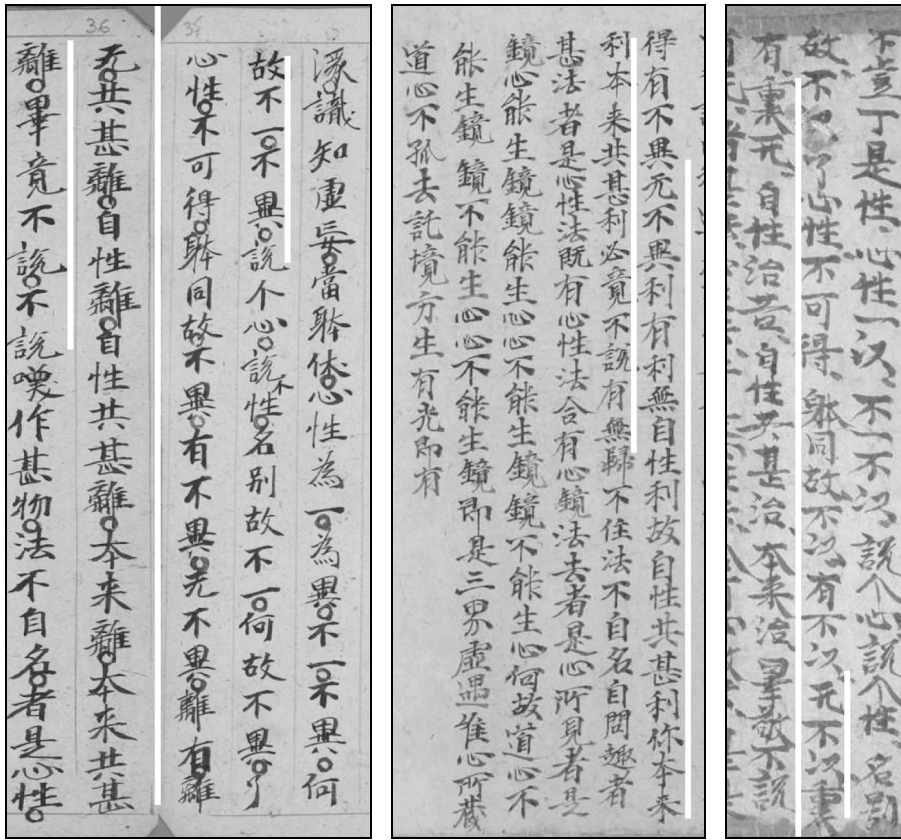 深識知虛妄當躰俢心性為一為異不一不異何
故不一不異說个心說不性名別故不一何故不異了
心性不可得躰同故不異有不異无不異離有離
无共甚離自性離自性共甚離本來離本來共甚
離畢竟不說不說嘆作甚物法不自名者是心性
得有不異无不異利有利無自性利故自性共甚利你本来
利本来共甚利必竟不說有無歸不住法不自名自問趣者
甚法者是心性法既有心性法合有心鏡法去者是心所見者是
鏡心能生鏡鏡能生心心不能生鏡鏡不能生心何故道心不
能生鏡鏡不能生心心不能生鏡即是三界虛遇唯心所藏
道心不孤去託境方生有光即有
不豈丁是性心性一㳄不一不㳄說个心說个性名別
故不㐌了心性不可得躰同故不㳄有不㳄元不㳄重
有重元自性治昔自性共甚治本来治畢敬不說